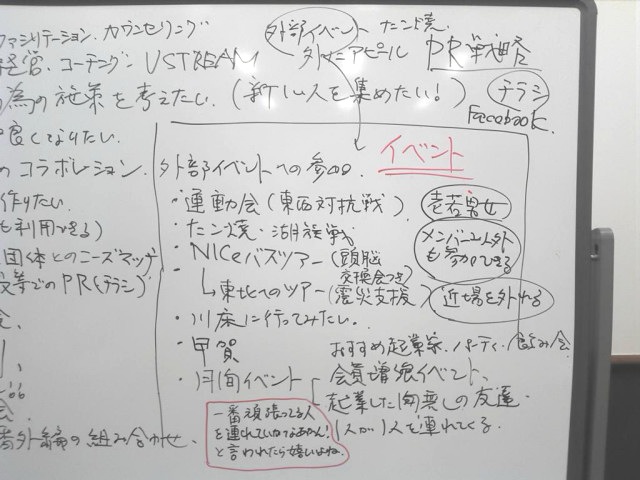 ファシリテーション カウンセリング
経営、コーチング USTREAM
の為の施策を考えたい。(新しい人を集めたい!)
良くなりたい。
コラボレーション
作りたい
も利用できる)
団体とのニーズマッチ
等でのPR(チラシ)
番外編の組み合わせ、
外部イベント たこ焼、
外にアピール PR戦略
チラシ
Facebook
外部イベントへの参加 イベント
・運動会(東西対抗戦) 老若男女
・たこ焼・
・NICeバスツアー(頭脳交換会つき)
メンバー以外も参加できる
↳東北へのツアー(震災支援) 近場を外れる
・川床に行ってみたい。
・甲賀
・月間イベント おすすめ起業家、パーティ、飲み会
会員増強イベント、
起業した仲間の友達
1人が1人を連れてくる
一番頑張ってる人
を連れていかなあかん!
と言われたら嬉しいよね。